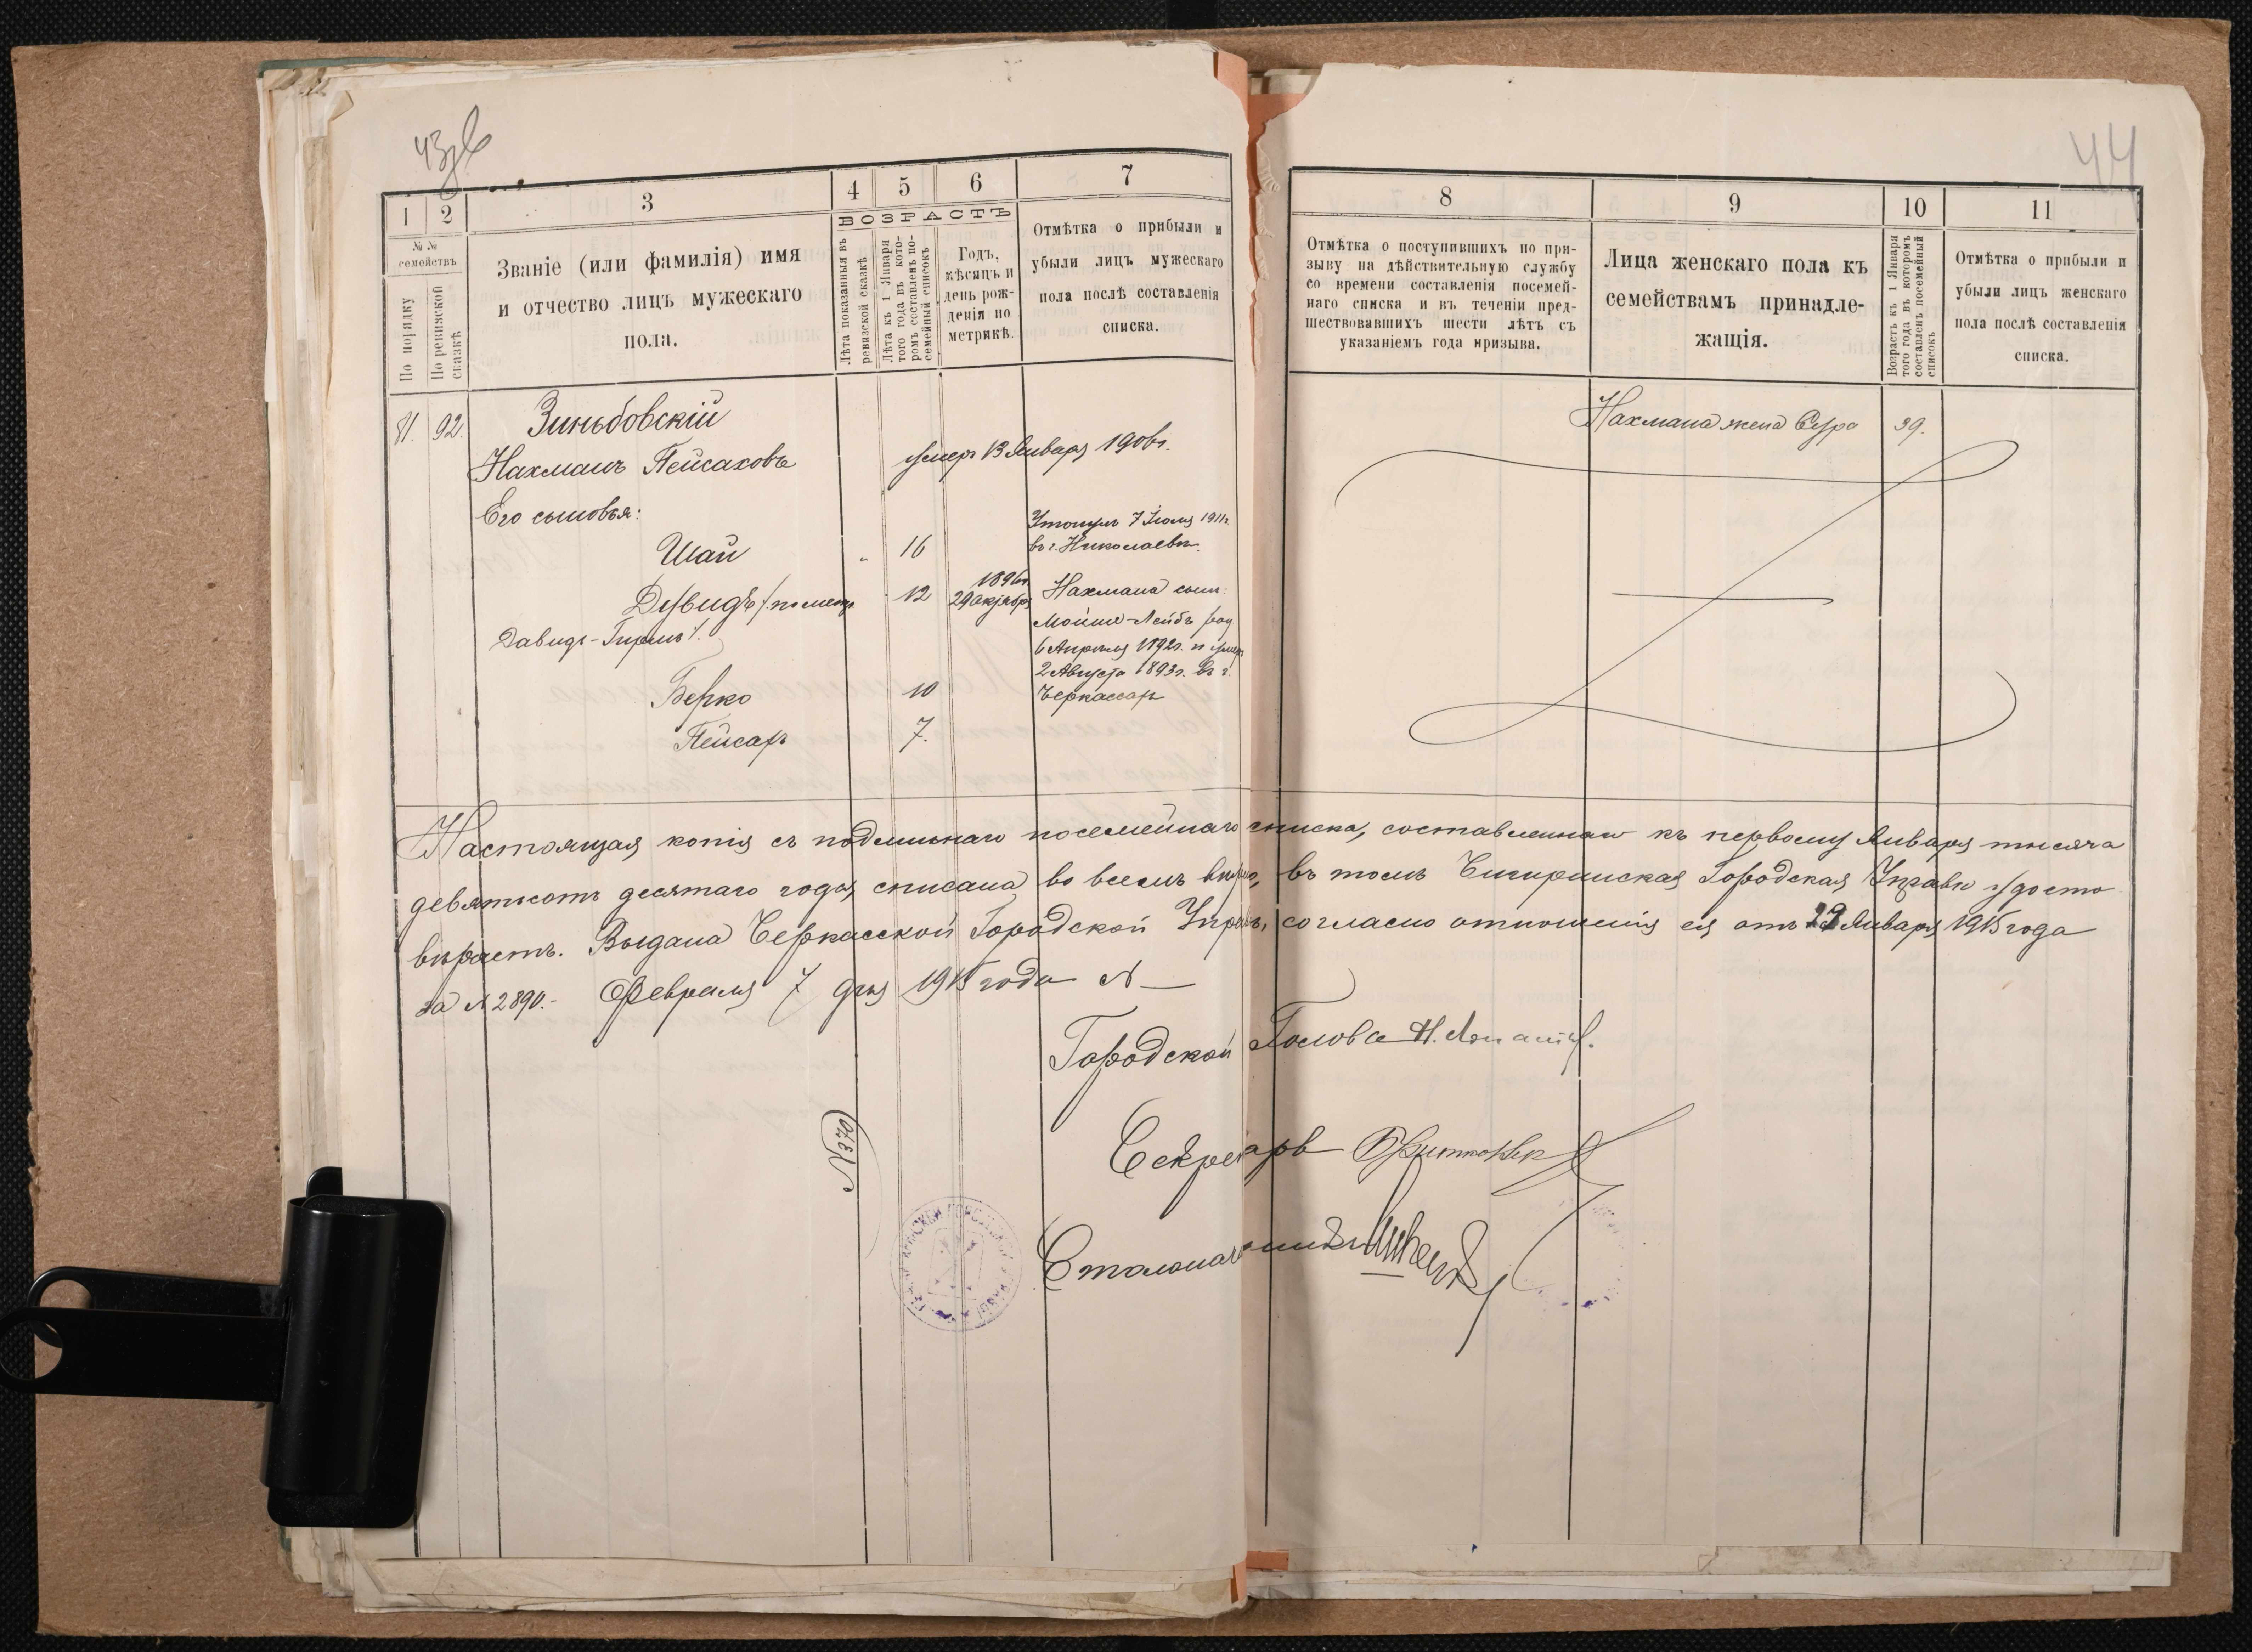 43об
44
1
2
3
4
5
6
7
№ №
семействъ
По порядку
По ревизской
сказкѣ
Званіе (или фамилія) имя
и отчество лицъ мужескаго
пола.
ВОЗРАСТЪ
Лѣта показанныя въ
ревизской сказкѣ
Лѣта къ 1 Января
того года въ кото-
ромъ составленъ по-
семейный списокъ
Годъ,
мѣсяцъ и
день рож-
денія по
метрикѣ.
Отмѣтка о прибыли и
убыли лицъ мужескаго
пола послѣ составленія
списка.
8
9
10
11
Отмѣтка о поступившихъ по при-
зыву на дѣйствительную службу
со времени составленія посемей-
наго списка и въ теченіи пред-
шествовавшихъ шести лѣтъ съ
указаніемъ года призыва.
Лица женскаго пола къ
семействамъ принадле-
жащія.
Возрастъ къ 1 Января
того года въ которомъ
составленъ посемейный
списокъ
Отмѣтка о прибыли и
убыли лицъ женскаго
пола послѣ составленія
списка.
92.
Зиньбовскій
Нахманъ Пейсаховъ
умеръ 13 Января 1906г.
Нахмана жена Сура
39.
Его сыновья:
Шай
" 16
Утонулъ 7 Іюля 1911г.
въ г. Николаевѣ.
Дувидъ /по метр.
Давидъ-Гиршъ/.
12
1896г.
29 октября
Нахмана сынъ:
Мойше-Лейбъ род.
6 Апрѣля 1892г. и умеръ
2 Августа 1893г. въ г.
Черкассахъ
Берко
10
Пейсахъ
7.
Настоящая копія съ подлиннаго посемейнаго списка, составленнаго къ первому Января тысяча
девятьсотъ десятаго года, списана во всемъ вѣрно, въ томъ Чигиринская Городская Управа удосто
вѣряетъ. Выдана Черкасской Городской Управѣ, согласно отношенія ея отъ 29 Января 1915 года
за № 2890.- Февраля 7 дня 1915 года №
Городской Голова Н.
Секретарь
Столоначальникъ
№ 370